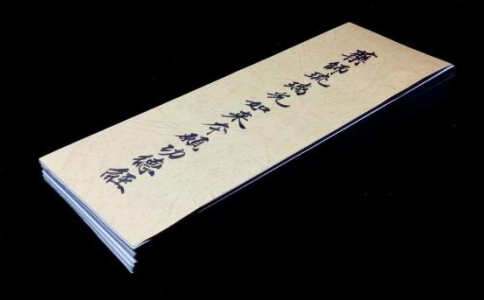 藥師琉璃光如来本願功德經